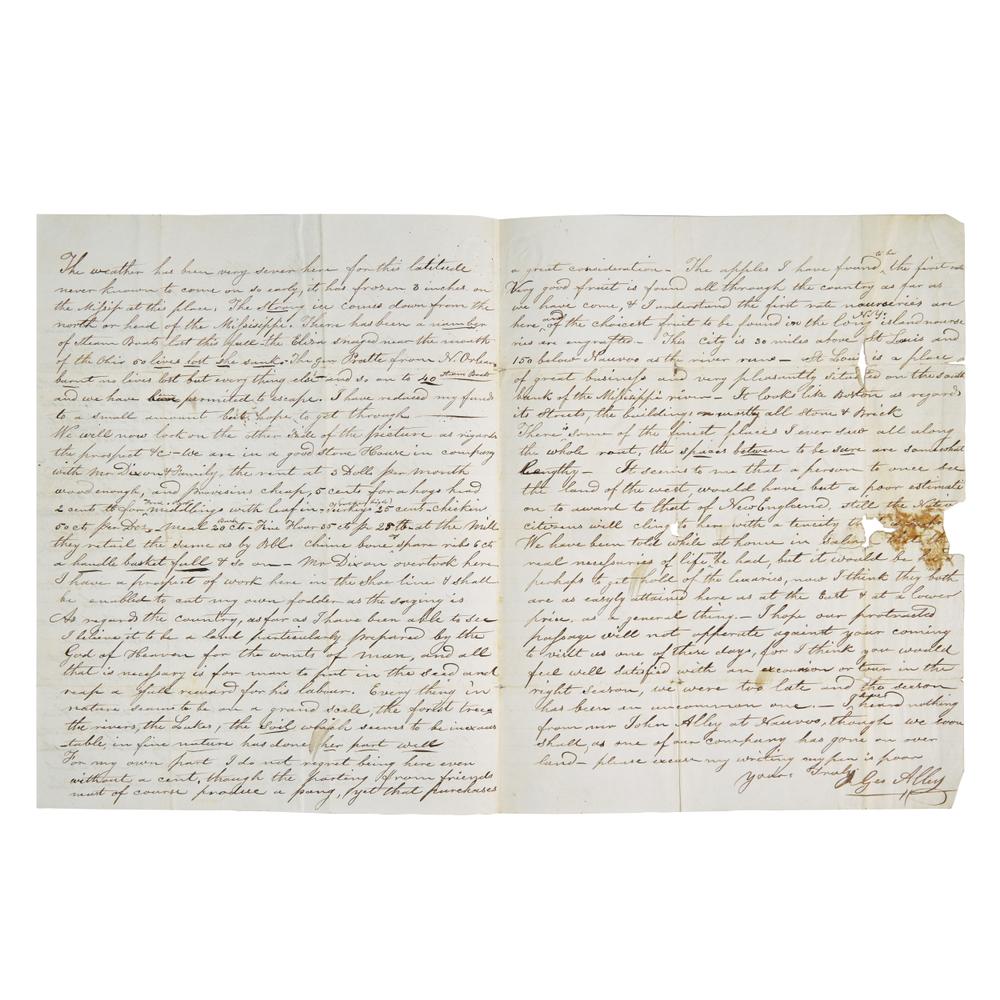 The weather has been very sever here for this latitude
never known to come on so early, it has frozen 3 inches on
the Missip at this place, The ice comes down from the
north or head of the Missisippi. There has been a number
of Steam Boats lost this fall - the Eliza snaged near the mouth
of the Ohio 50 lives lost she sunk. The Gen Pratte from N. Orleans
burnt no lives lost but every thing else and so on to 40 Steam Boats
and we have been permited to escape. I have reduced my funds
to a small amount but hope to get through
We will now look on the other side of the picture as regards
the prospect &c - We are in a good Stone House in company
with Mr Dixon & Family, the rent at 3 Dolls per month
wood enough, and provisins cheap, 5 cents for a hogs head
2 cent lb for middlings with leaf in 25 cent - chicken
50 ct per Doz - meal 20 cts - Fine Flour 55 ct pr 28 lb at the Mill
they retail the same as by Bbl. Chime bone & spare ribs 6 ct
a handle basket full & so on - Mr Dixon overtook here
I have a prospect of work here in the Shoe line & shall
be enabled to cut my own fodder as the saying is
As regards the country, as far as I have been able to see
I believe it to be a land particularly prepared by the
God of Heaven for the wants of man, and all
that is necessary is for man to put in the seed and
reap a full reward for his labour. Every thing in
nature seems to be on a grand scale, the forest trees
the rivers, the Lakes, the Soil which seems to be inexaus
table, in fine nature has done her part well
For my own part I do not regret being here even
without a cent, though the parting from friends
must of course produce a pang, yet that purchases
a great consideration - The apples I have found to be the first rate
Very good fruit is found all through the country as far as
we have come, & I understand the first rate nurseries are
here, and of the choicest fruit to be found in the long island N.Y. nurse
ries are engrafted - This city is 30 miles above St Louis and
150 below Nauvoo as the river runs - St Louis is a place
of great business and very pleasantly situated on the south
bank of the Missisippi river - It looks like Boston as regards
its Streets, the buildings mostly all stone & Brick
There is some of the finest places I ever saw all along
the whole rout, the spaces between to be sure are somewhat
lengthy - It seems to me that a person to once see
the land of the west, would have but a poor estimati
on to award to that of New England, still the Native
citizens will cling to her with a tenacity
We have been told while at home in
real necessaries of life be had, but it would be
perhaps to get hold of the luxaries, now I think they both
are as easyly attained here as at the East & at a lower
price, as a general thing. - I hope our protracted
passage will not opperate against your coming
to visit us one of these days, for I think you would
feel well satisfied with an excursion or tour in the
right season, we were too late and the season
has been an uncommon one. - I have heard nothing
from mr John Alley at Nauvoo, though we soon
shall, as one of our company has gone on over
land - please excuse my writing my pen is poor
yours Truly Geo Alley